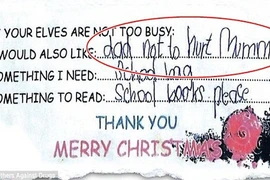 YOUR ELVES ARE NOT TOO BUSY:
WOULD ALSO LIKE: dad not to hurt Mummy
SOMETHING I NEED: School bag
SOMETHING TO READ: School books please
THANK YOU
MERRY CHRISTMAS
Mothers Against Drugs